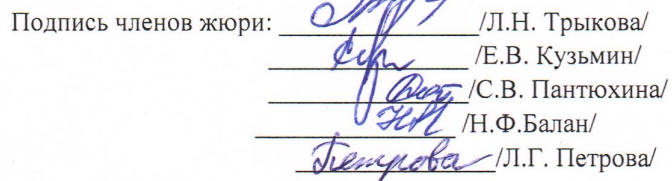 Подпись членов жюри: /Л.Н. Трыкова/
/Е.В. Кузьмин/
/С.В. Пантюхина/
/Н.Ф.Балан/
Петрова /Л.Г. Петрова/